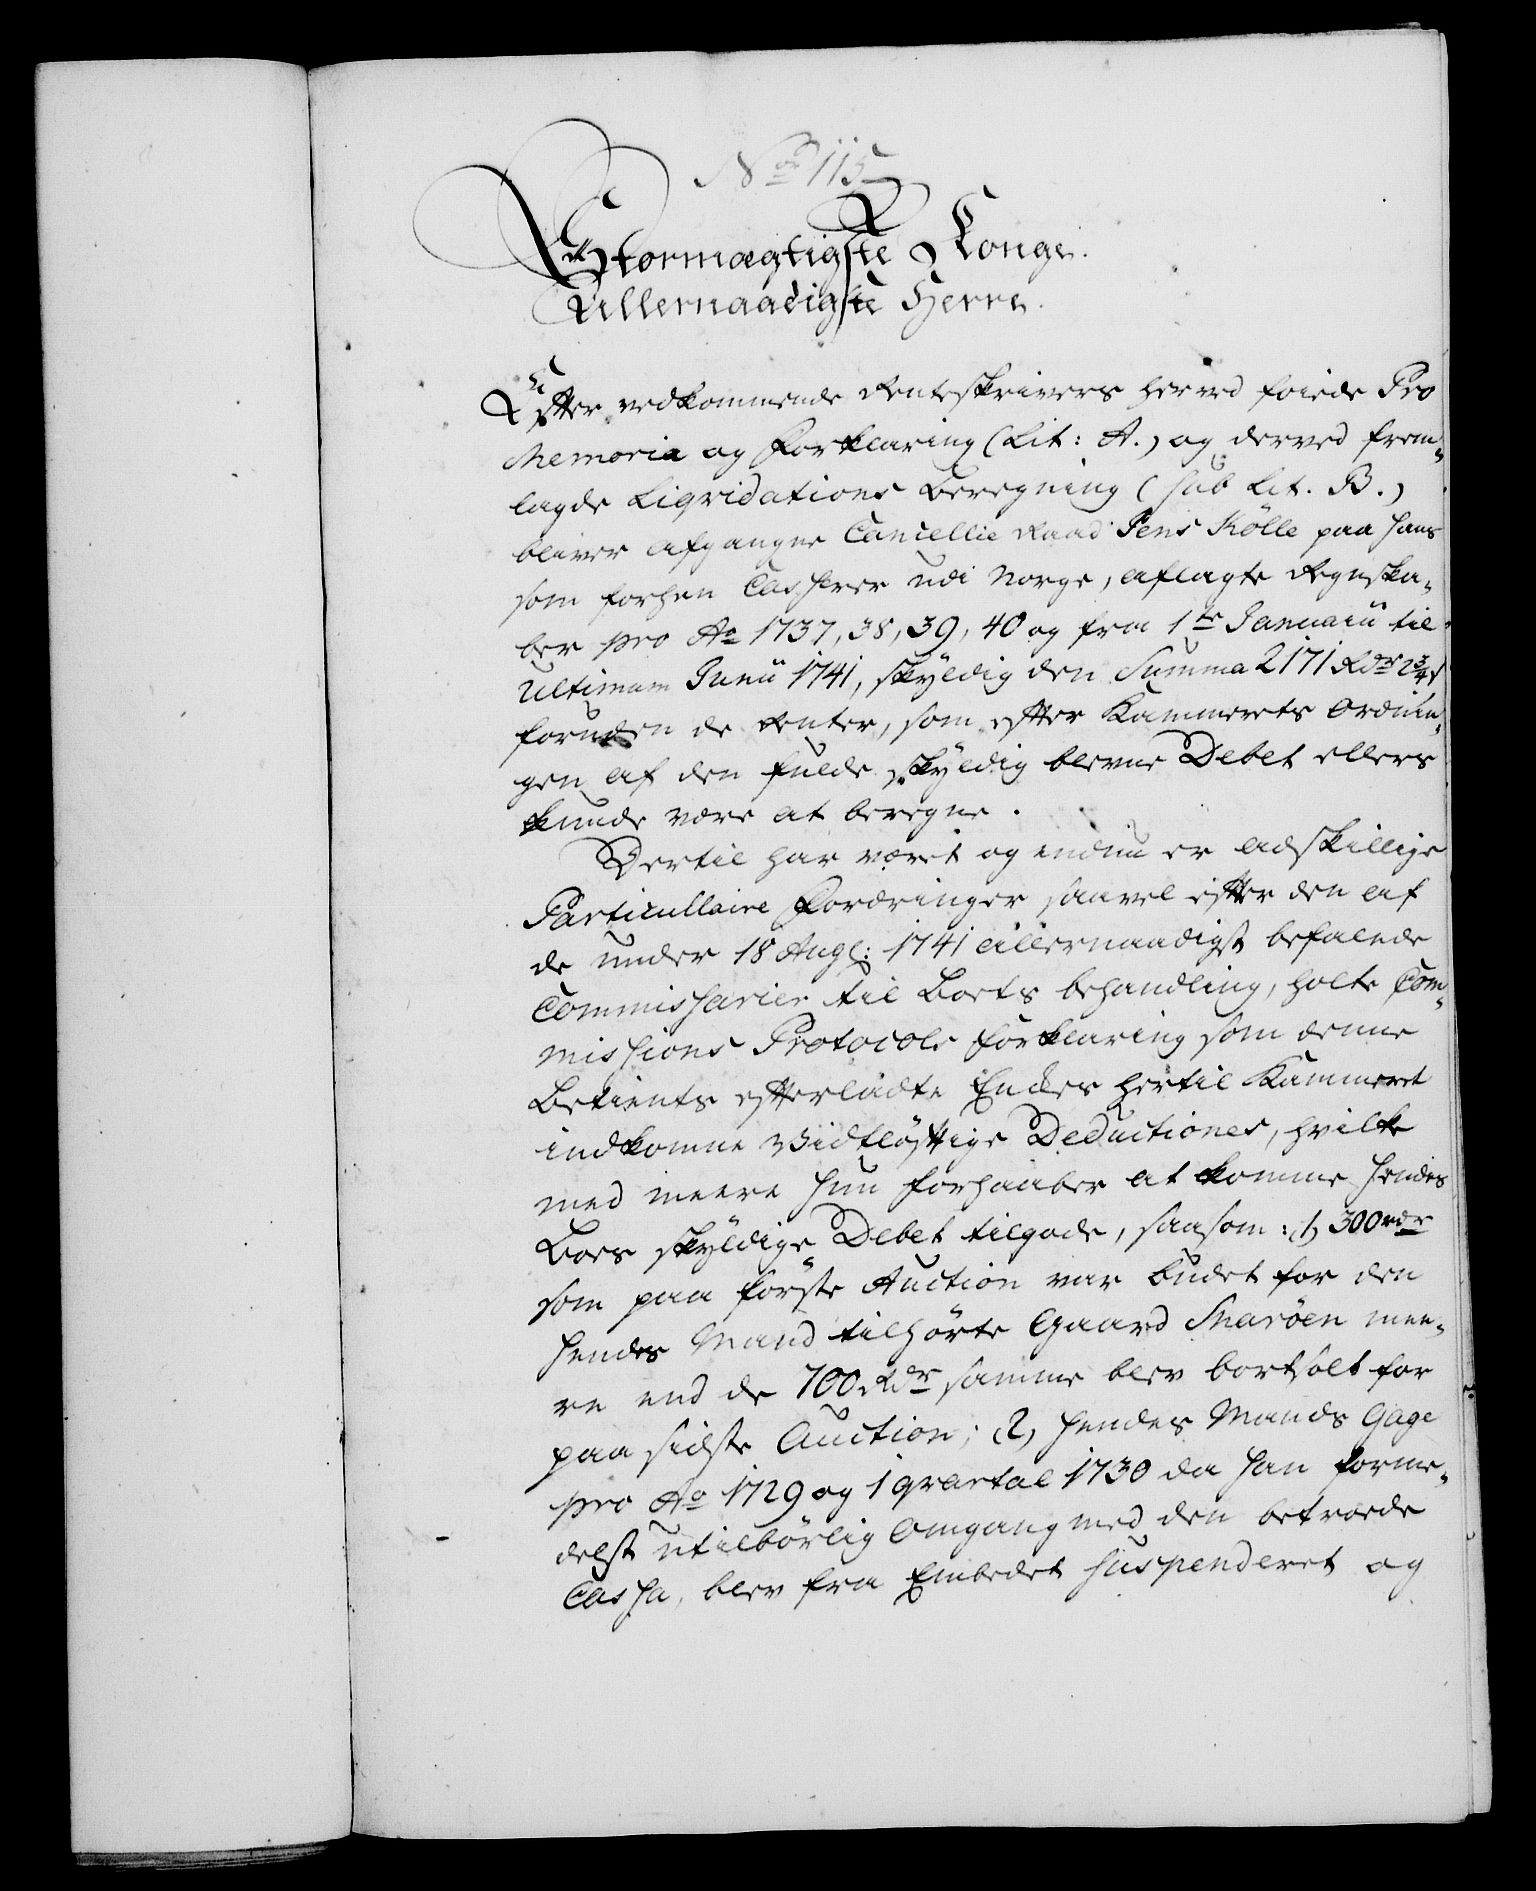 No 115
Stormægtigste Konge.
Allernaadigste Herre.
Efter vedkommende Renteskrivers herved föiede Pro
Memoria og Forklaring (Lit: A.) og derved frem„
lagde Liqvidations Beregning (sub Lit. B.)
bliver afgangne Cancellie Raad Jens Kölle paa hans
som forhen Casserer udi Norge, aflagte Regnska„
ber pro Ao 1737, 38, 39, 40 og fra 1te Januarii til
Ultimam Junii 1741, skyldig den Summa 2171 Rdr 2¾ s
foruden de Renter, som efter Kammerets Ordnin„
gen af den fulde skyldig blevne Debet ellers
kunde være at beregne.
Dertil har været og endnu er adskillige
Particullaire Fordringer saavel efter den af
de under 18 Aug: 1741 allernaadigst befalede
Commissarier til Boets behandling, holte Com„
missions Protocols Forklaring som denne
Betients efterladte Enkes hertil Kammeret
indkomne vidtløftige Deductioner, hvilke
med meere hun forhaaber at komme hendes
Boes skyldige Debet tilgode, saasom: 1) 300 rdr
som paa förste Auction var budet for den
hendes Mand tilhörte Gaard Snaröen mee„
re end de 700 Rdr samme blev bortsolt for
paa sidste Auction; 2, hendes Mands Gage
pro Ao 1729 og 1 qvartal 1730 da han forme„
delst utilbörlig Omgang med den betroede
Cassa, blev fra Embedet suspenderet og